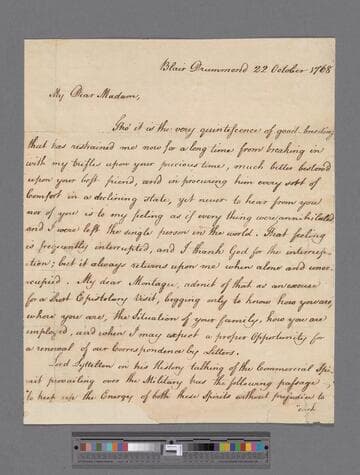 Blair Drummond 22 October 1768
My Dear Madam,
Tho' it is the very quintessence of good-breeding
that has restrained me now for a long time from breaking in
with my trifles upon your precious time, much better bestowed
upon your best friend, and in procuring him every sort of
Comfort in a declining state, yet never to hear from you
nor of you is to my feeling as if every thing were annihilated
and I were left the single person in the world. That feeling
is frequently interrupted, and I thank God for the interrup=
=tion; but it always returns upon me when alone and unoc=
=cupied. My dear Montagu, admit of that as an excuse
for a Short Epistolary Visit, begging only to know how you are,
where you are, the Situation of your family, how you are
employed, and when I may expect a proper Opportunity for
a renewal of our Correspondence by Letters.
Lord Lyttelton in his History talking of the Commercial Spi=
=rit prevailing over the Military has the following passage,
"To keep up the Energy of both these Spirits without prejudice to
"each